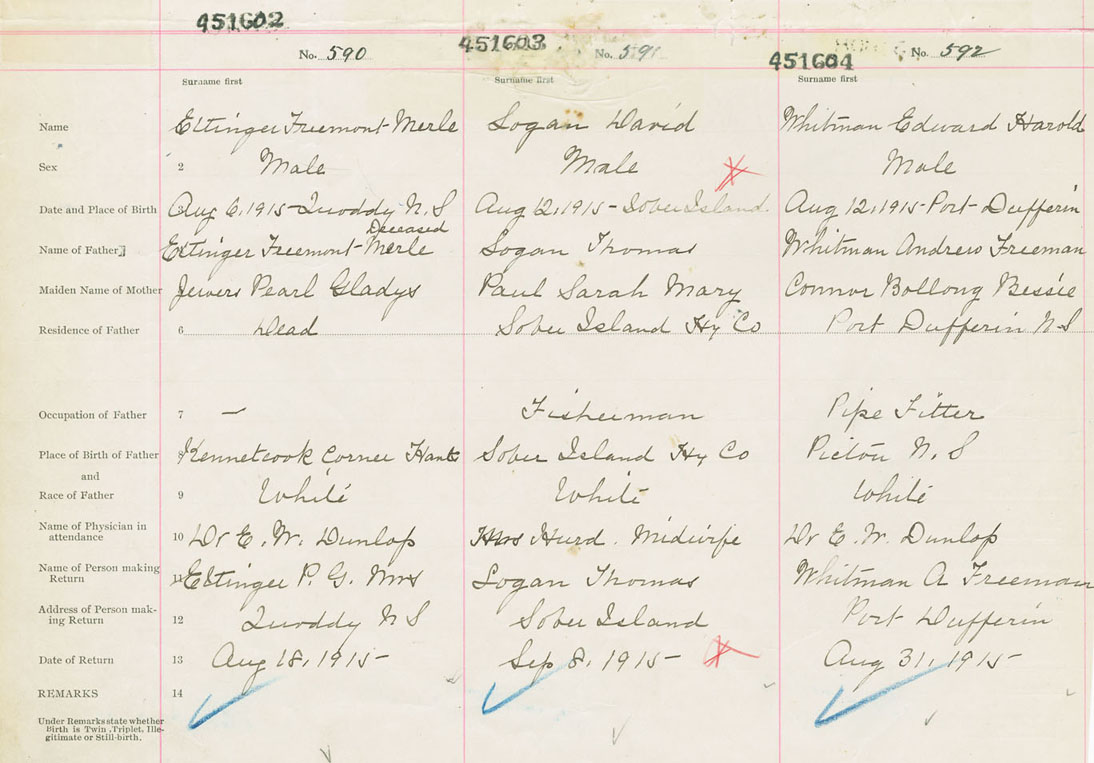 451602
451603
451604
No. 590
No. 591
No. 592
Surname first
Surname first
Surname first
Name Ettinger Freemont Merle Logan David Whitman Edward Harold
Sex 2 Male Male Male
Date and Place of Birth Aug 6, 1915 - Quoddy N.S Aug 12, 1915 - Sober Island Aug 12, 1915 - Port Dufferin
Deceased
Name of Father Ettinger Freemont Merle Logan Thomas Whitman Andrew Freeman
Maiden Name of Mother Jewers Pearl Gladys Paul Sarah Mary Connor Bollong Bessie
Residence of Father 6 Dead Sober Island Hx Co Port Dufferin N S
Occupation of Father 7 — Fisherman Pipe Fitter
Place of Birth of Father 8 Kennetcook Corner Hants Sober Island Hx Co Pictou N. S
and
Race of Father 9 White White White
Name of Physician in
attendance 10 Dr E. W. Dunlop Mrs Hurd. Midwife Dr E. W. Dunlop
Name of Person making
Return 11 Ettinger P. G. Mrs Logan Thomas Whitman A Freeman
Address of Person mak-
ing Return 12 Quoddy N S Sober Island Port Dufferin
Date of Return 13 Aug 18, 1915 - Sep 8, 1915 - Aug 31, 1915 -
REMARKS 14
Under Remarks state whether
Birth is Twin, Triplet, Ille-
gitimate or Still-birth.